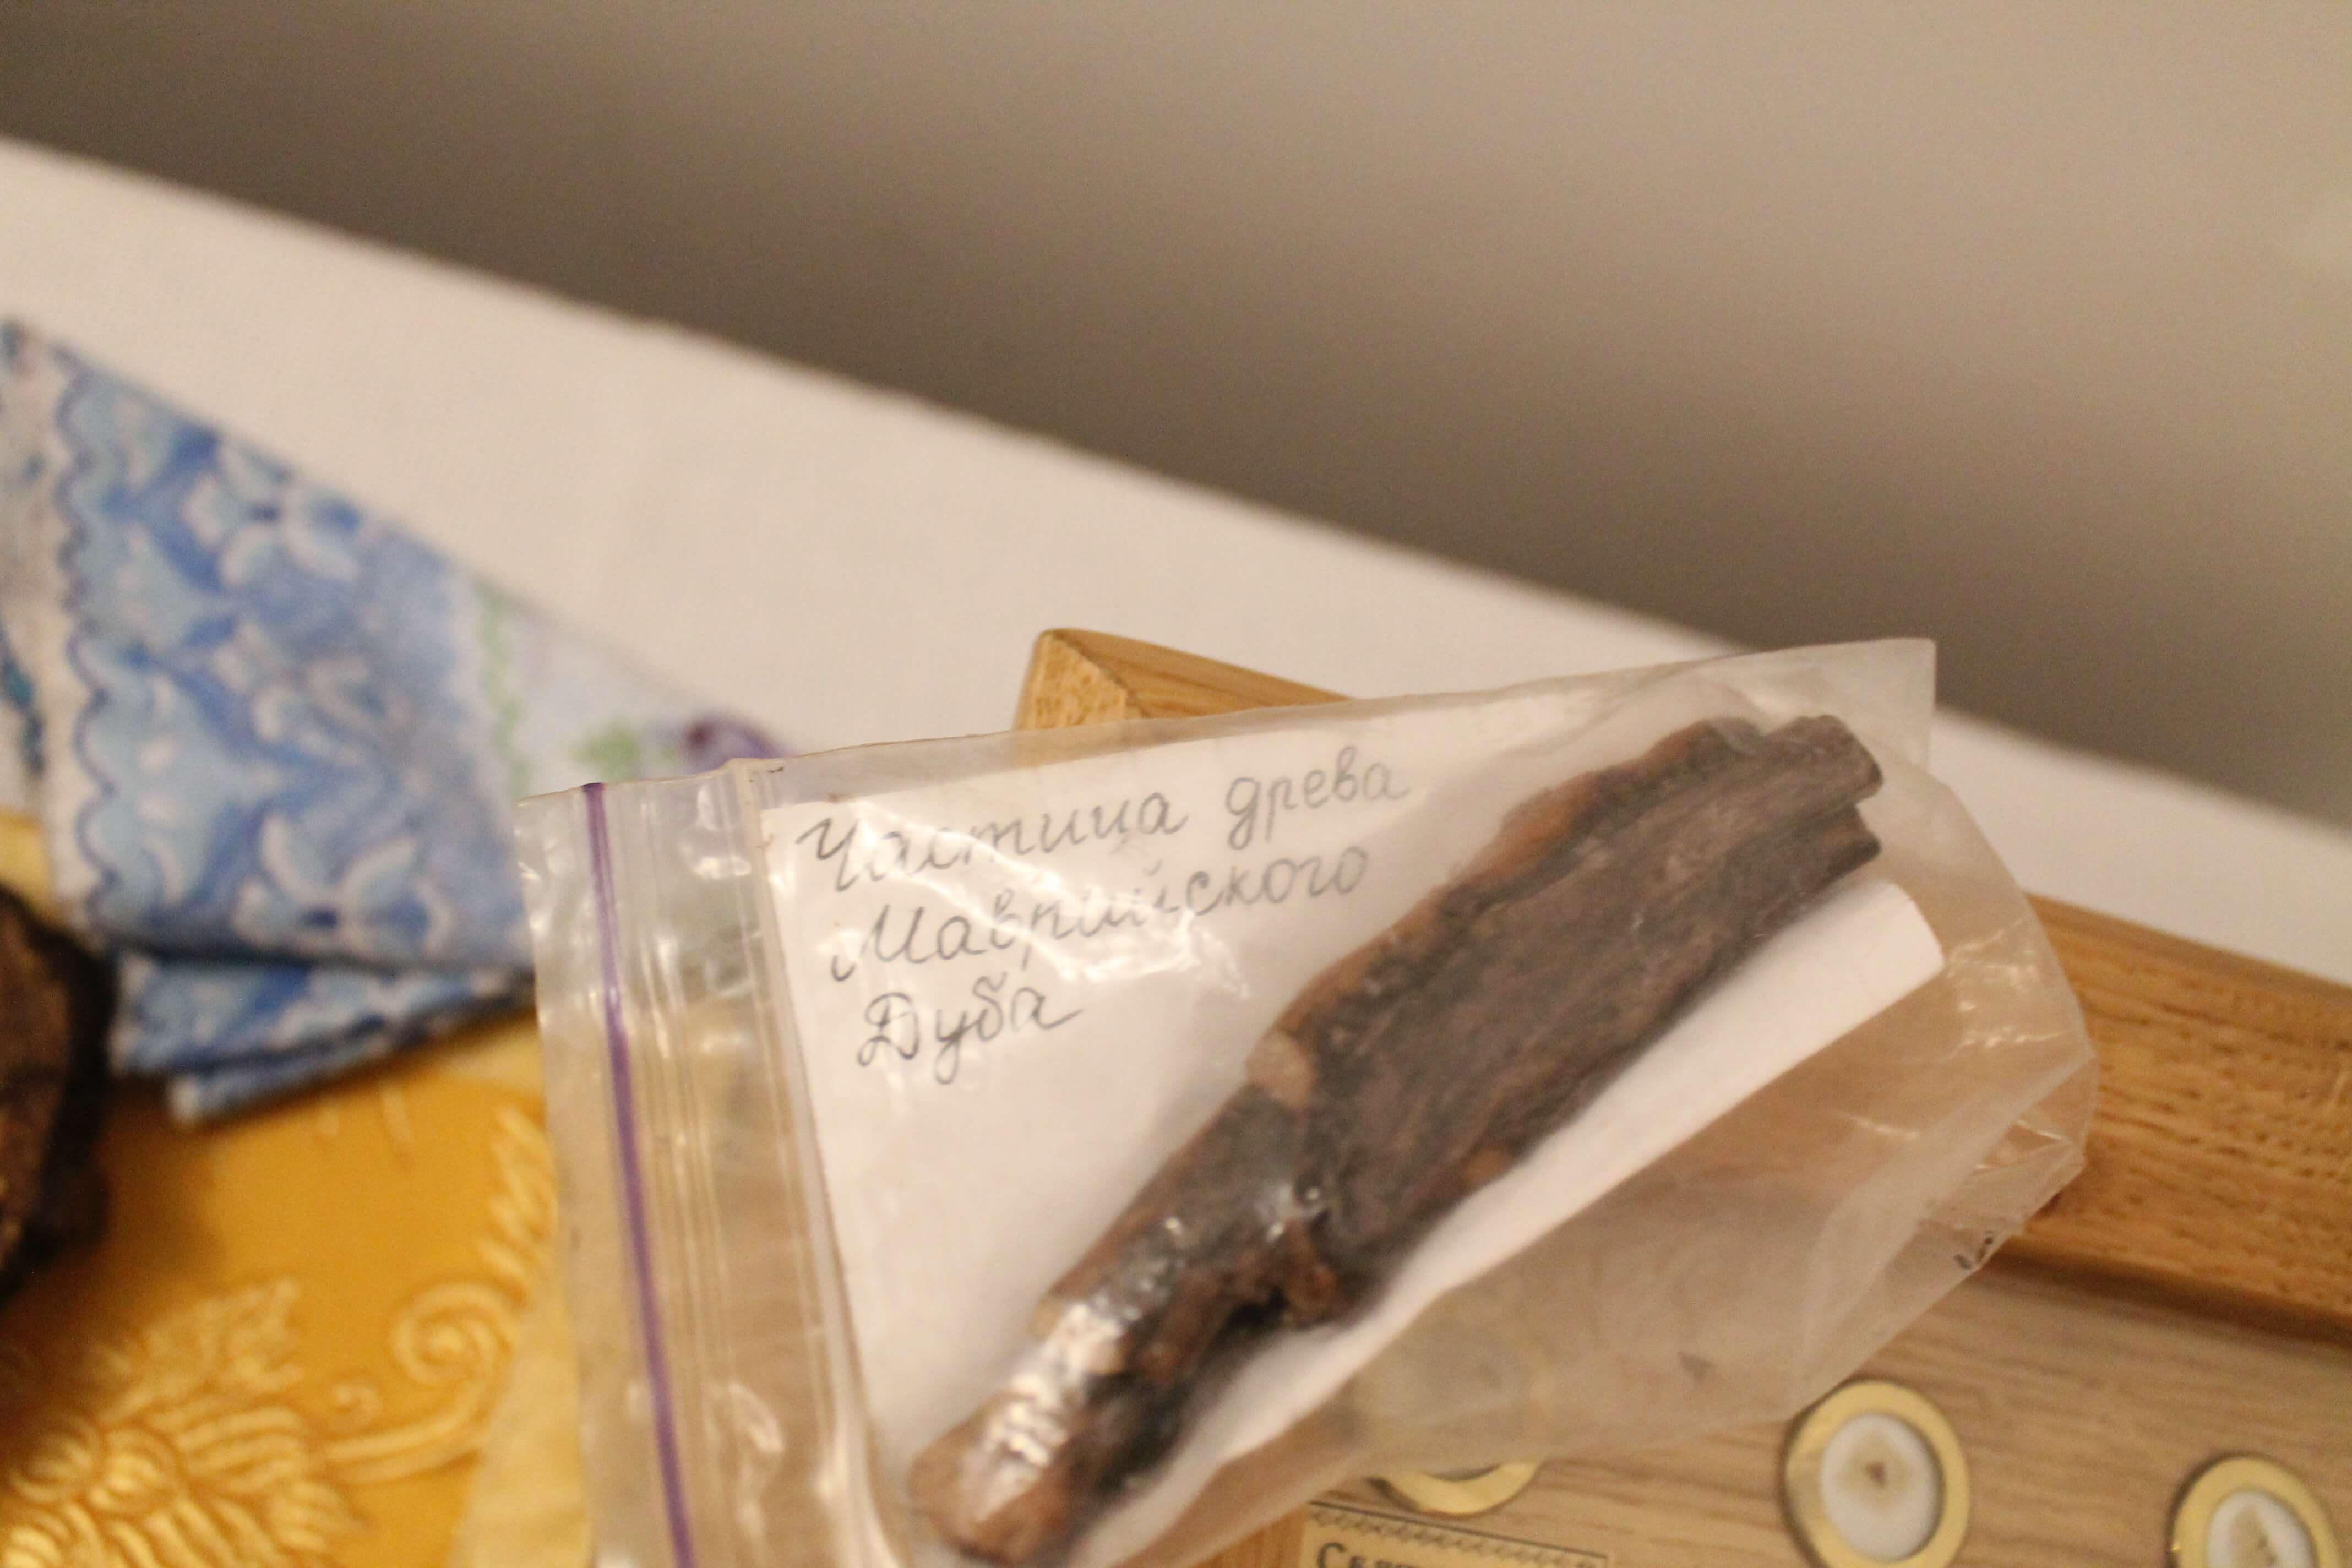 Частица древа
Маврийского
Дуба